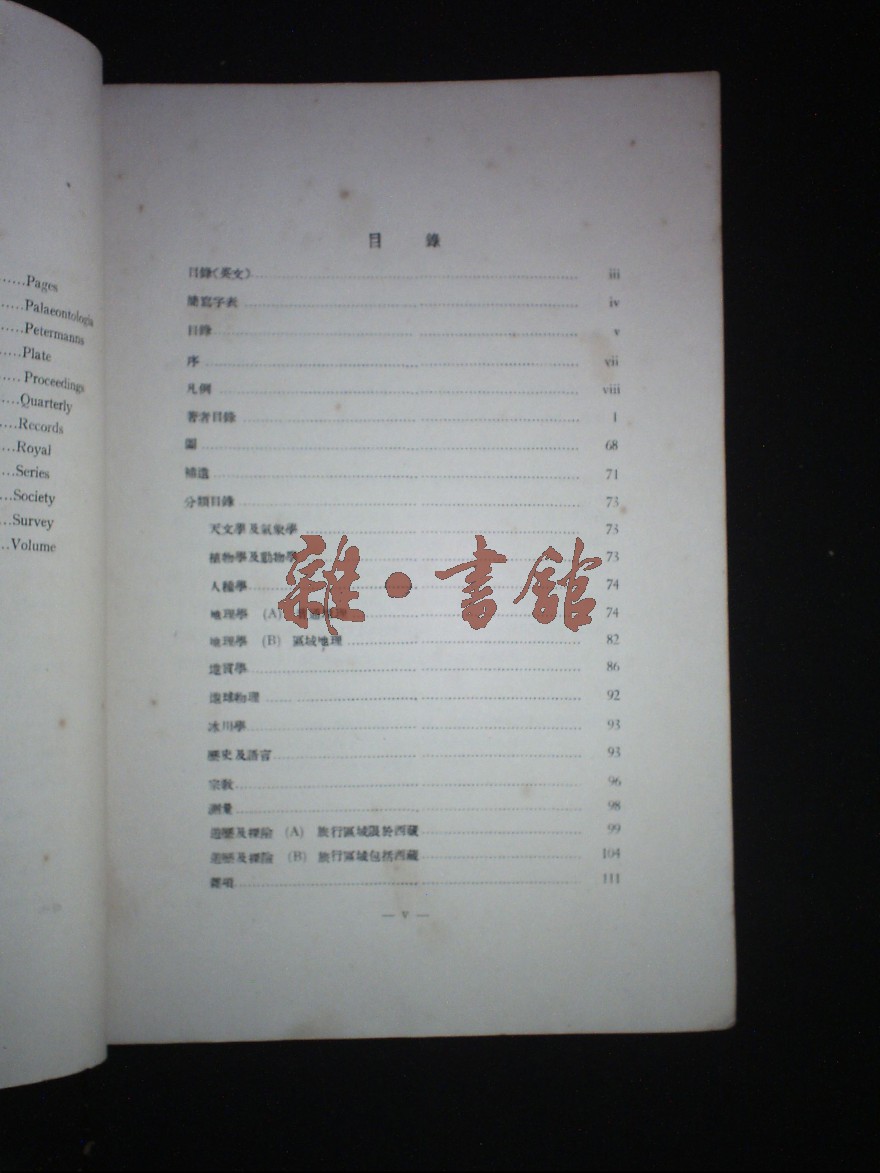 ......Pages
.....Palaeontologia
.....Petermanns
.....Plate
.....Proceedings
....Quarterly
....Records
....Royal
...Series
...Society
...Survey
..Volume
目 錄
目錄(英文) iii
簡寫字表 iv
目錄 v
序 vii
凡例 viii
著者目錄 1
圖 68
補遺 71
分類目錄 73
天文學及氣象學 73
植物學及動物學 73
人種學 74
地理學 (A) 74
地理學 (B) 區域地理 82
地質學 86
地球物理 92
冰川學 93
歷史及語言 93
宗教 96
測量 98
遊歷及探險 (A) 旅行區域限於西藏 99
遊歷及探險 (B) 旅行區域包括西藏 104
雜項 111
— v —
雜·書館